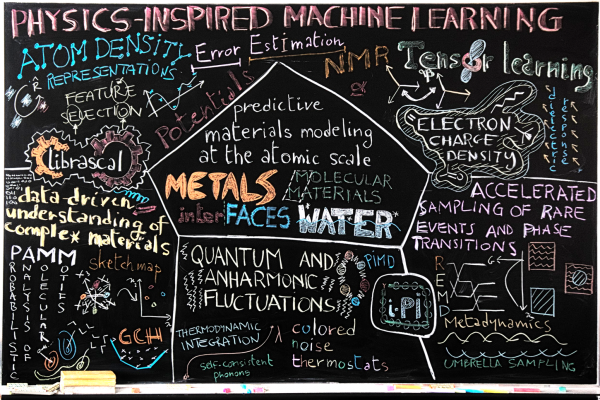 PHYSICS-INSPIRED MACHINE LEARNING
ATOM DENSITY
REPRESENTATIONS
Error Estimation
NMR
Tensor learning
FEATURE
SELECTION
Potentials
predictive
materials modeling
at the atomic scale
ELECTRON
CHARGE
DENSITY
dielectric
response
librascal
METALS
MOLECULAR
MATERIALS
interFACES
WATER
data driven
understanding of
complex materials
ACCELERATED
SAMPLING OF RARE
EVENTS AND PHASE
TRANSITIONS
PAMM
PROBABILISTIC
ANALYSIS OF
MOLECULAR
MOTIFS
sketchmap
GCH
QUANTUM AND
ANHARMONIC
FLUCTUATIONS
PIMD
i-PI
REMD
THERMODYNAMIC
INTEGRATION
colored
noise
thermostats
self-consistent
phonons
Metadynamics
UMBRELLA SAMPLING